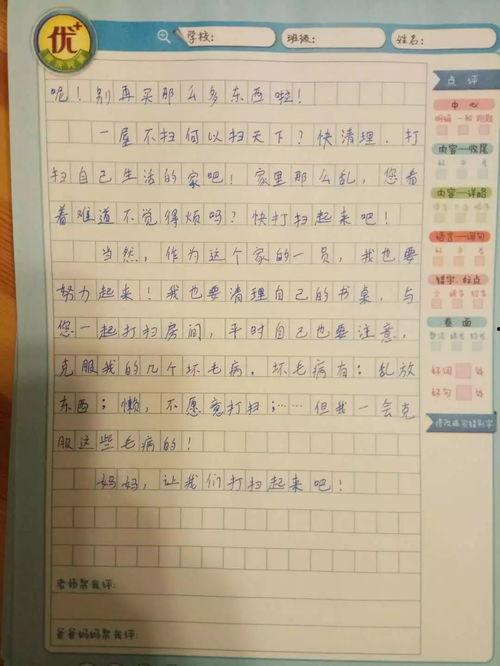 优+
学校:
班级:
姓名:
呢！别再买那么多东西啦！
一屋不扫何以扫天下？快清理．打
扫自己生活的家吧！家里那么乱，您看
着难道不觉得烦吗？快打扫起来吧！
当然，作为这个家的一员，我也要
努力起来！我也要清理自己的书桌，与
您一起打扫房间，平时自己也要注意，
克服我的几个坏毛病．坏毛病有：乱放
东西；懒，不愿意打扫；……但我一会克
服这些毛病的！
妈妈，让我们打扫起来吧！
老师帮我评:
爸爸妈妈帮我评:
点评
中心
明确 一般 跑题
内容—收尾
好 中 差
内容—详略
语言—词句
好 中 差
错字、标点
卷面
好词 处
好句 处